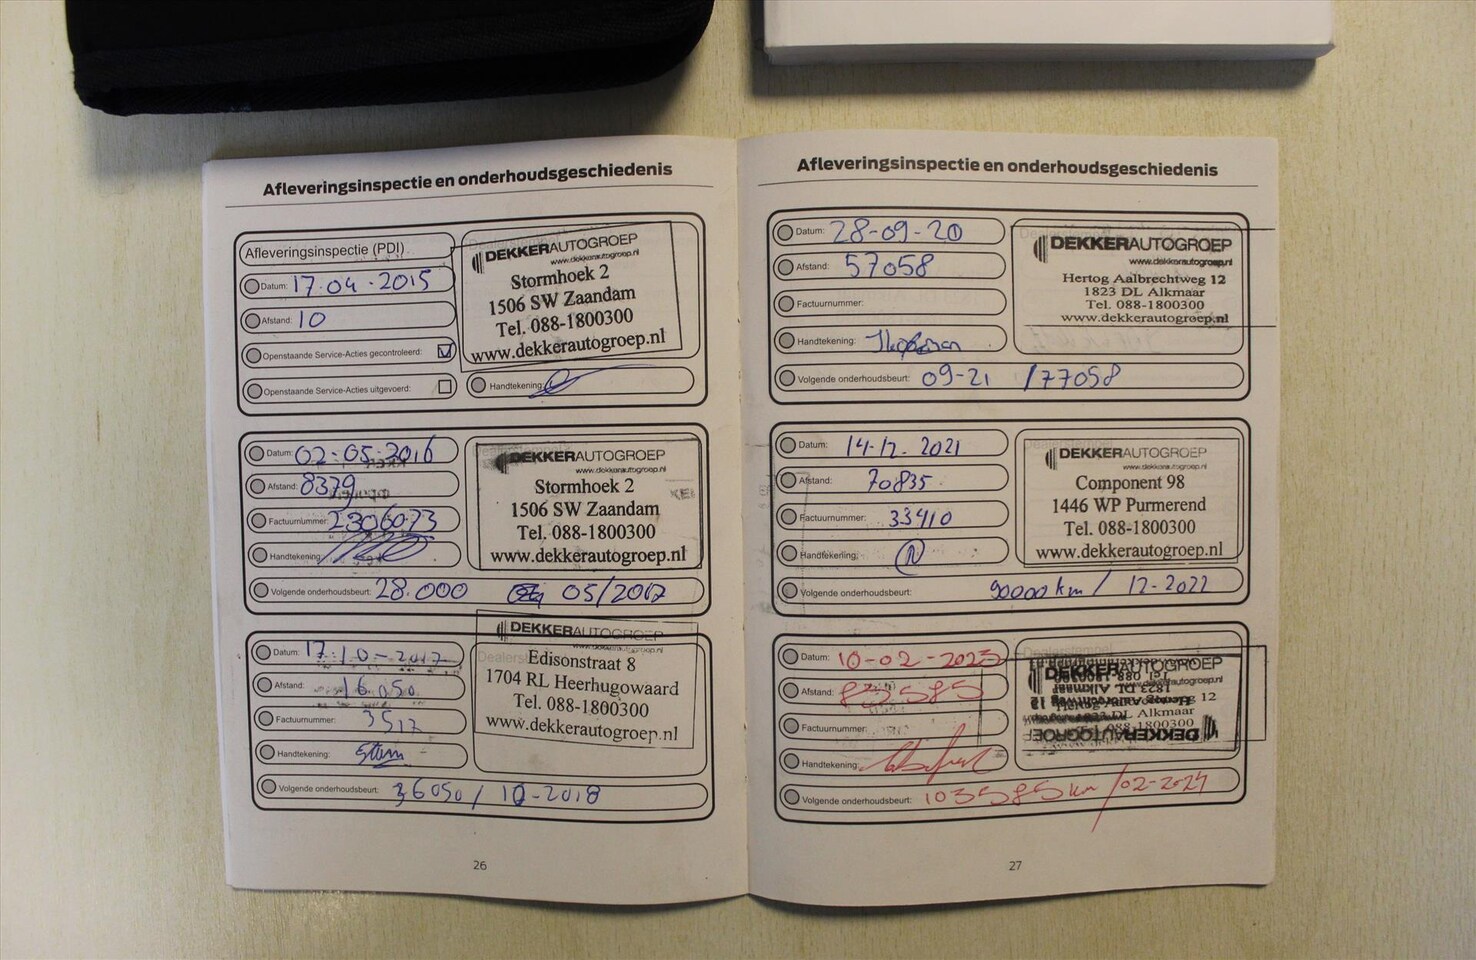 Afleveringsinspectie en onderhoudsgeschiedenis
Afleveringsinspectie (PDI)
Datum: 17-04-2015
Afstand: 10
Openstaande Service-Acties gecontroleerd:
Openstaande Service-Acties uitgevoerd:
DEKKERAUTOGROEP
www.dekkerautogroep.nl
Stormhoek 2
1506 SW Zaandam
Tel. 088-1800300
www.dekkerautogroep.nl
Handtekening:
Datum: 02-05-2016
Afstand: 8379
Factuurnummer: 2306073
Handtekening:
DEKKERAUTOGROEP
www.dekkerautogroep.nl
Stormhoek 2
1506 SW Zaandam
Tel. 088-1800300
www.dekkerautogroep.nl
Volgende onderhoudsbeurt: 28.000 05/2017
Datum: 17-10-2017
Afstand: 16050
Factuurnummer: 3517
Handtekening:
DEKKERAUTOGROEP
www.dekkerautogroep.nl
Edisonstraat 8
1704 RL Heerhugowaard
Tel. 088-1800300
www.dekkerautogroep.nl
Volgende onderhoudsbeurt: 36050 / 10-2018
26
Afleveringsinspectie en onderhoudsgeschiedenis
Datum: 28-09-20
Afstand: 57058
Factuurnummer:
Handtekening:
DEKKERAUTOGROEP
www.dekkerautogroep.nl
Hertog Aalbrechtweg 12
1823 DL Alkmaar
Tel. 088-1800300
www.dekkerautogroep.nl
Volgende onderhoudsbeurt: 09-21 /77058
Datum: 14-12-2021
Afstand: 70835
Factuurnummer: 33410
Handtekening:
DEKKERAUTOGROEP
www.dekkerautogroep.nl
Component 98
1446 WP Purmerend
Tel. 088-1800300
www.dekkerautogroep.nl
Volgende onderhoudsbeurt: 90000 km / 12-2022
Datum: 10-02-2023
Afstand: 83585
Factuurnummer:
Handtekening:
DEKKERAUTOGROEP
Volgende onderhoudsbeurt: 103585 km /02-2024
27